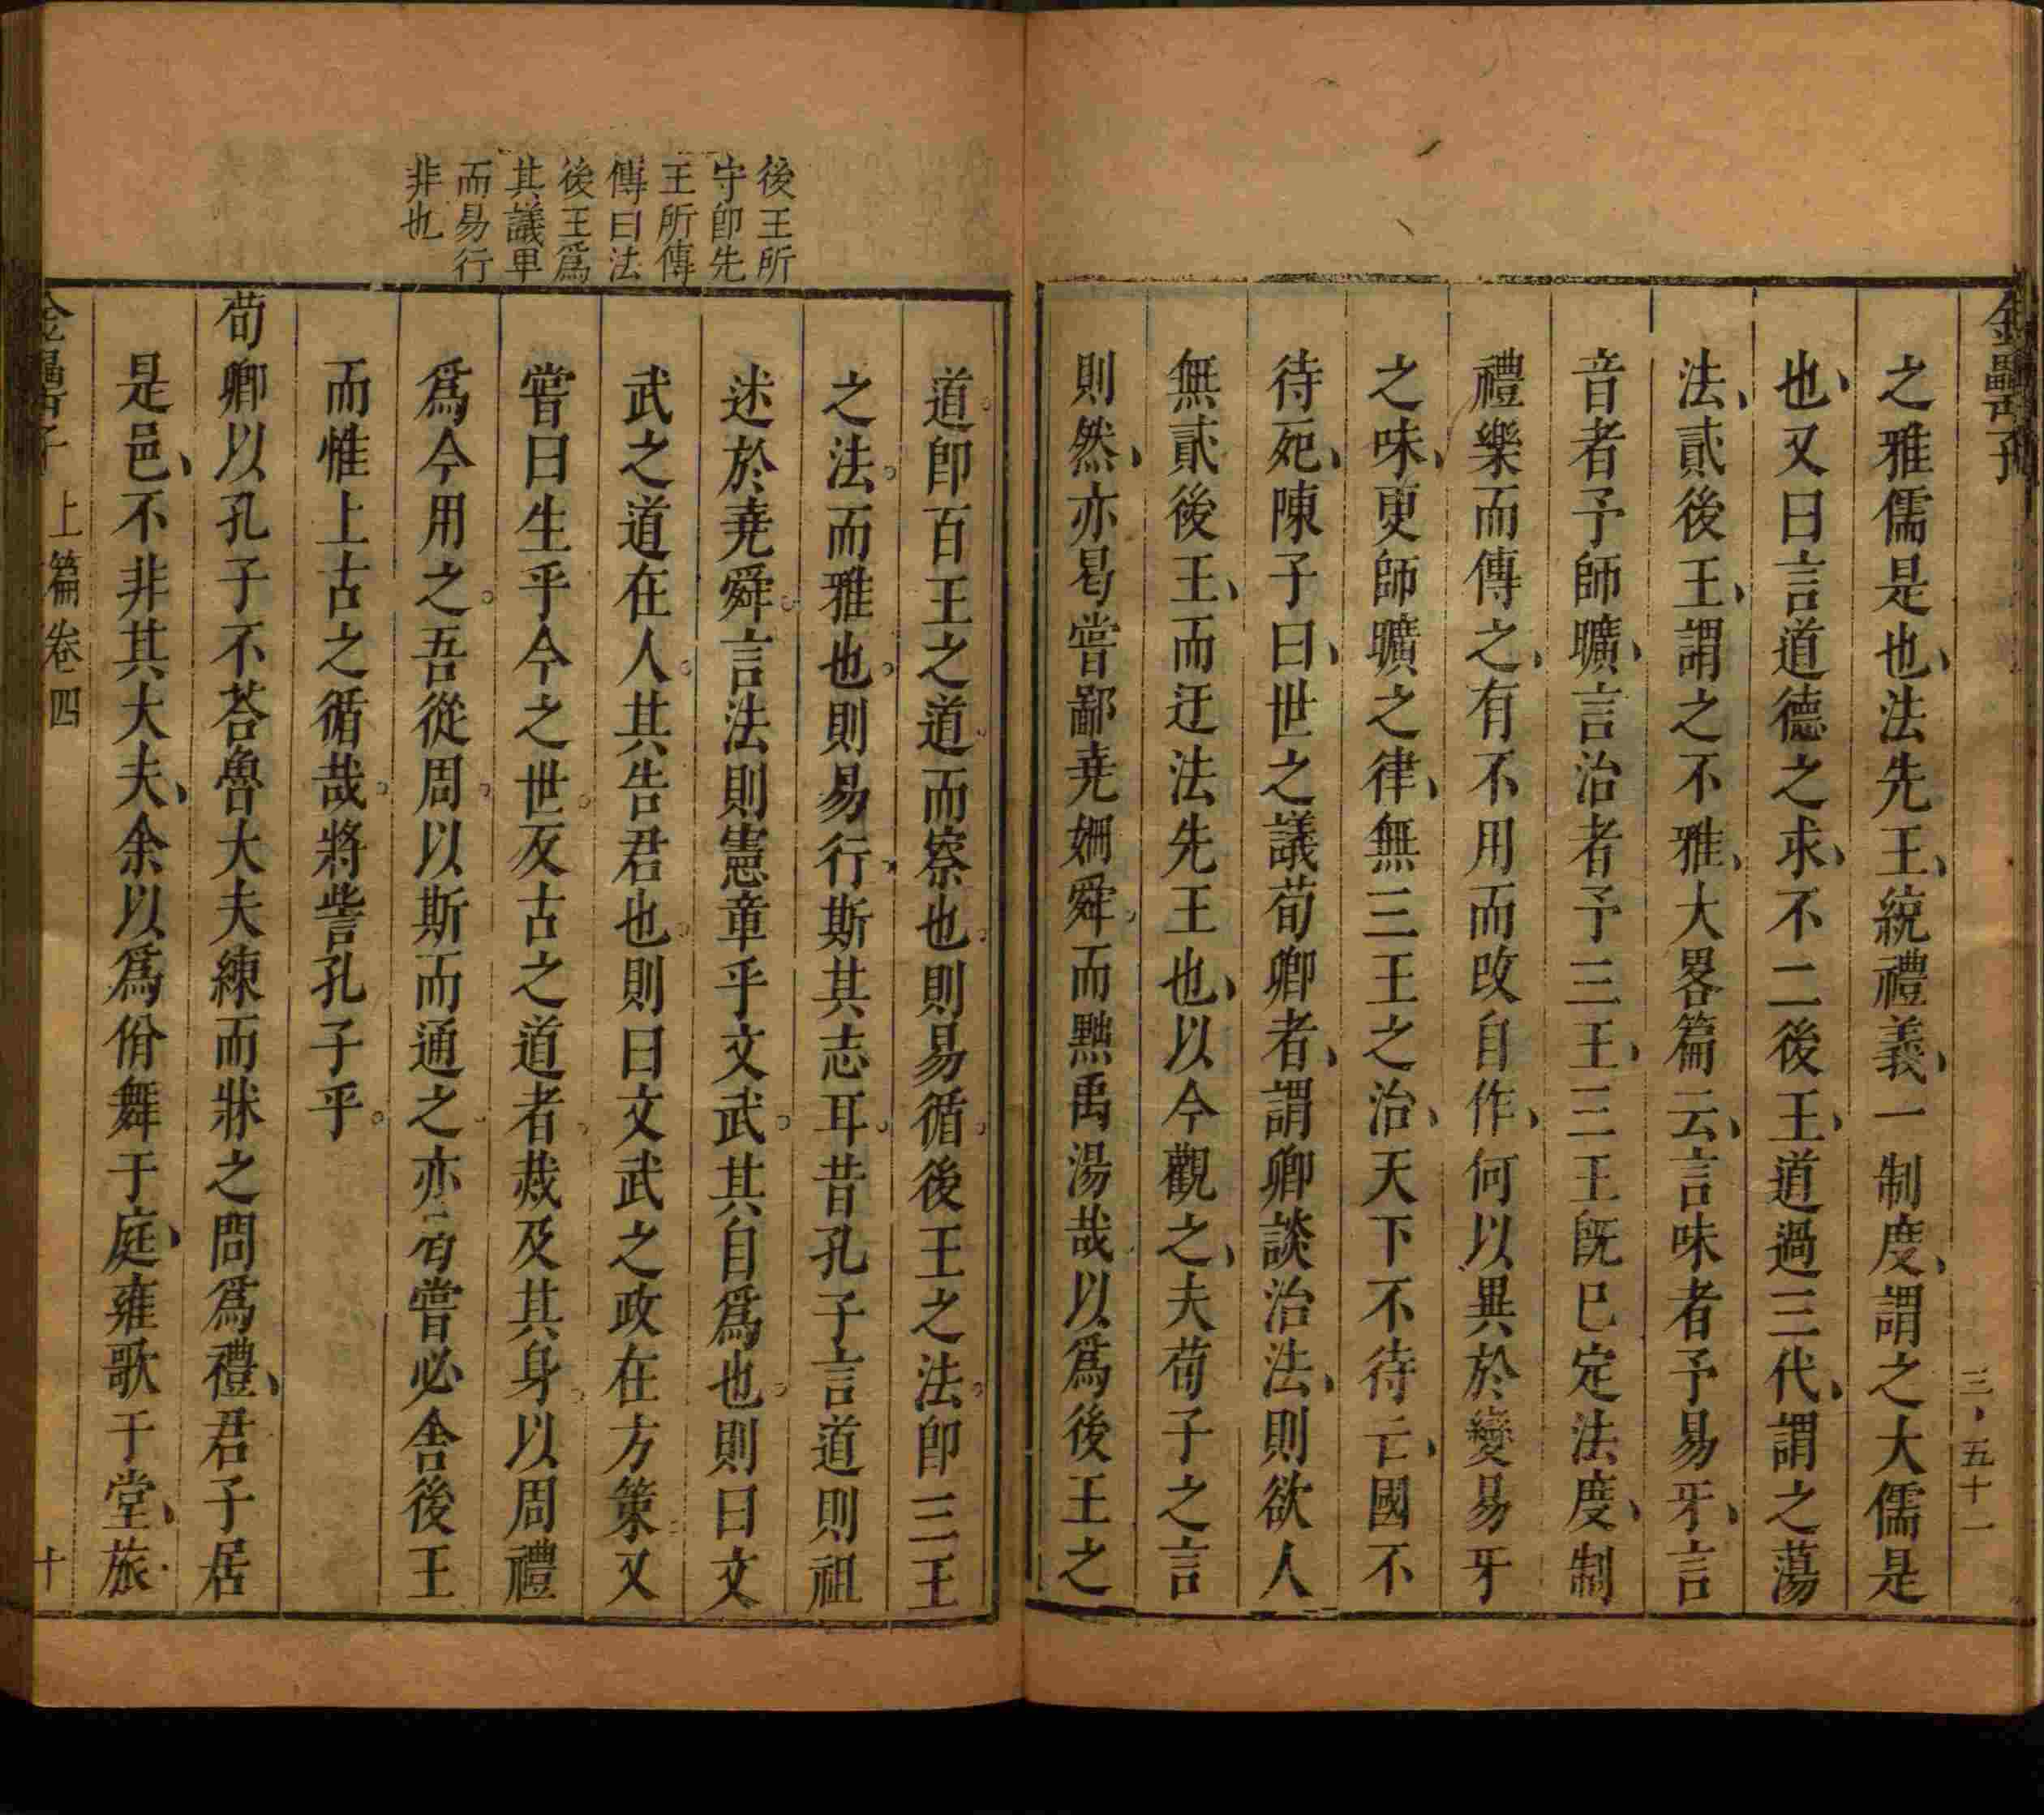 金罍子
三、五十一
之雅儒是也、法先王、統禮義、一制度、謂之大儒是
也、又曰言道德之求、不二後王、道過三代、謂之蕩
法、貳後王、謂之不雅、大畧篇云、言味者予易牙、言
音者予師曠、言治者予三王、三王旣已定法度、制
禮樂而傳之、有不用而改自作、何以異於變易牙
之味、更師曠之律、無三王之治、天下不待亡、國不
待死、陳子曰、世之議荀卿者、謂卿談治法、則欲人
無貳後王、而迂法先王也、以今觀之、夫荀子之言
則然、亦曷嘗鄙堯姍舜、而黜禹湯哉以爲後王之
後王所
守卽先
王所傳
傳曰法
後王爲
其議卑
而易行
非也
道卽百王之道而察也則易循後王之法卽三王
之法而雅也則易行斯其志耳昔孔子言道則祖
述於堯舜言法則憲章乎文武其自爲也則曰文
武之道在人其告君也則曰文武之政在方策又
嘗曰生乎今之世反古之道者烖及其身以周禮
爲今用之吾從周以斯而通之亦嘗必舍後王
而惟上古之循哉將訾孔子乎
荀卿以孔子不荅魯大夫練而牀之問爲禮、君子居
是邑、不非其大夫、余以爲佾舞于庭、雍歌于堂、旅
金罍子 上篇卷四 十